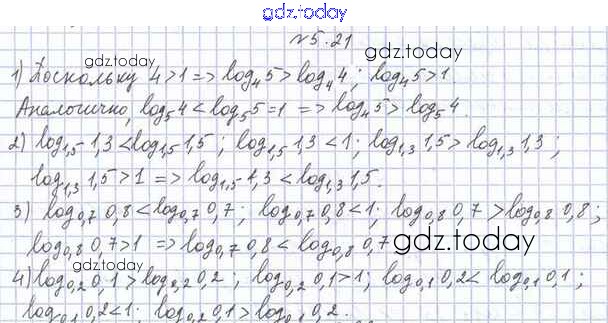 gdz.today
№5.21
gdz.today
1) Поскольку 4>1 => log₄5>log₄4; log₄5>1.
Аналогично, log₅4<log₅5=1 => log₄5>log₅4.
2) log₁,₅1,3<log₁,₅1,5; log₁,₅1,3<1; log₁,₃1,5>log₁,₃1,3;
log₁,₃1,5>1 => log₁,₅1,3<log₁,₃1,5.
3) log₀,₇0,8<log₀,₇0,7; log₀,₇0,8<1; log₀,₈0,7>log₀,₈0,8;
log₀,₈0,7>1 => log₀,₇0,8<log₀,₈0,7
gdz.today
4) log₀,₂0,1>log₀,₂0,2; log₀,₂0,1>1; log₀,₁0,2<log₀,₁0,1;
log₀,₁0,2<1; log₀,₂0,1>log₀,₁0,2.